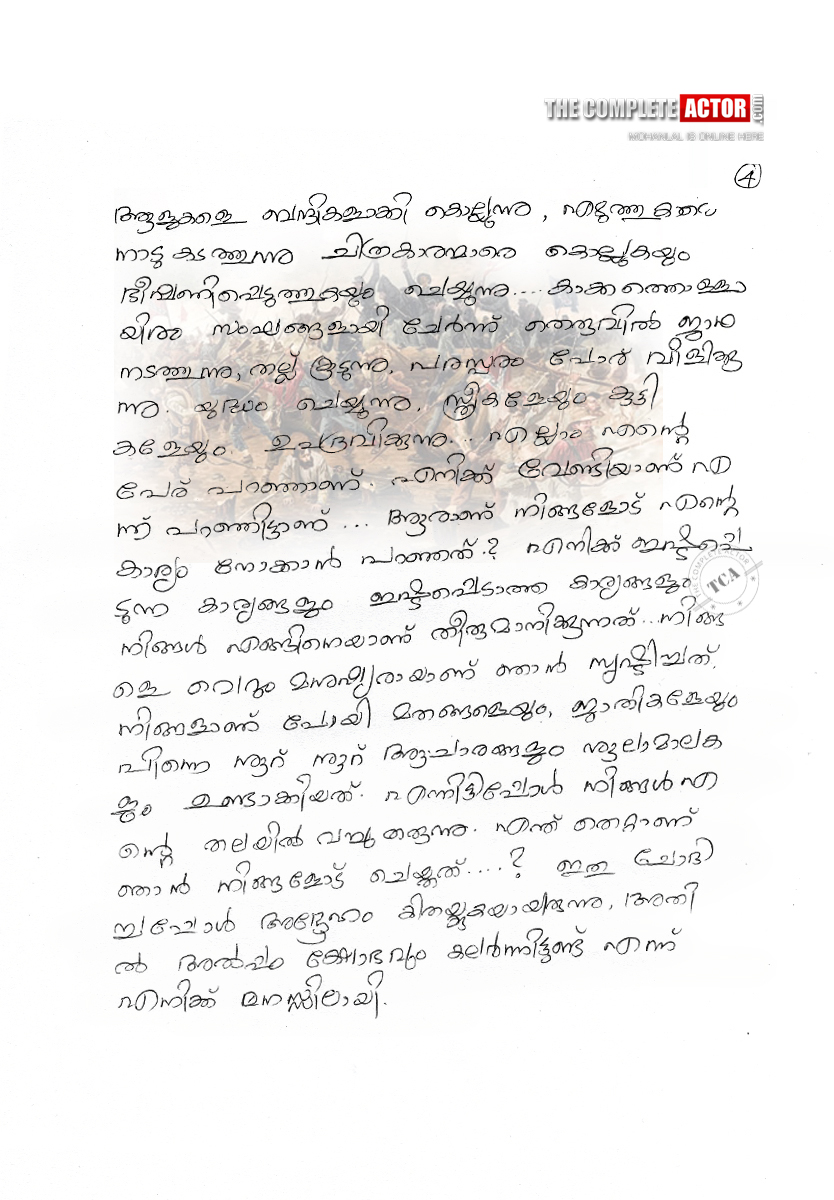 THE COMPLETE ACTOR .COM
MOHANLAL IS ONLINE HERE
4
ആളുകളെ ബന്ദികളാക്കി കൊല്ലുന്നു, എഴുത്തുകാരെ
നാടു കടത്തുന്നു ചിത്രകാരന്മാരെ കൊല്ലുകയും
ഭീഷണിപ്പെടുത്തുകയും ചെയ്യുന്നു.... കാക്കത്തൊള്ളാ
യിരം സംഘങ്ങളായി ചേർന്ന് തെരുവിൽ ജാഥ
നടത്തുന്നു, തല്ല് കൂടുന്നു. പരസ്പരം പോര് വിളിക്കു
ന്നു. യുദ്ധം ചെയ്യുന്നു. സ്ത്രീകളേയും കുട്ടി
കളേയും ഉപദ്രവിക്കുന്നു... എല്ലാം എന്റെ
പേര് പറഞ്ഞാണ്. എനിക്ക് വേണ്ടിയാണ് എ
ന്ന് പറഞ്ഞിട്ടാണ്... ആരാണ് നിങ്ങളോട് എന്റെ
കാര്യം നോക്കാൻ പറഞ്ഞത്.? എനിക്ക് ഇഷ്ടപ്പെ
ടുന്ന കാര്യങ്ങളും ഇഷ്ടപ്പെടാത്ത കാര്യങ്ങളും
നിങ്ങൾ എങ്ങിനെയാണ് തീരുമാനിക്കുന്നത്... നിങ്ങ
ളെ വെറും മനുഷ്യരായാണ് ഞാൻ സൃഷ്ടിച്ചത്.
നിങ്ങളാണ് പോയി മതങ്ങളെയും, ജാതികളേയും
പിന്നെ നൂറ് നൂറ് ആചാരങ്ങളും നൂലാമാലക
ളും ഉണ്ടാക്കിയത്. എന്നിട്ടിപ്പോൾ നിങ്ങൾ എ
ന്റെ തലയിൽ വച്ചു തരുന്നു. എന്ത് തെറ്റാണ്
ഞാൻ നിങ്ങളോട് ചെയ്തത്....? ഇത് ചോദി
ച്ചപ്പോൾ അദ്ദേഹം കിതയ്ക്കുകയായിരുന്നു, അതി
ൽ അൽപ്പം ക്ഷോഭവും കലർന്നിട്ടുണ്ട് എന്ന്
എനിക്ക് മനസ്സിലായി.
THE COMPLETE ACTOR
TCA